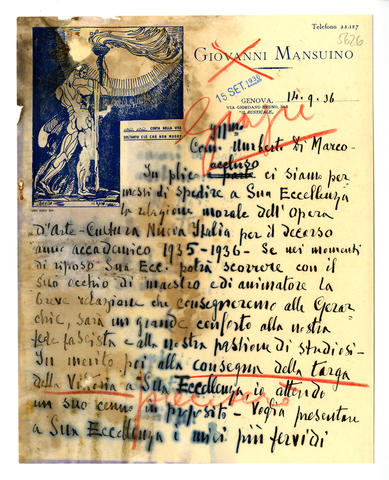 Telefono 22.127
5626
GIOVANNI MANSUINO
15 SET. 1936
GENOVA, 14.9.36
VIA GIORDANO BRUNO,
"IL RUSTICALE,,
CONTA NELLA VITA
SOLTANTO CIÒ CHE NON MUORE
Comm. Umberto di Marco -
accluso
In plico a parte ci siamo per
messi di spedire a Sua Eccellenza
la relazione morale dell'Opera
D'Arte - Cultura Nuova Italia per il decorso
anno accademico 1935-1936 - Se nei momenti
di riposo Sua Ecc. potrà scorrere con il
suo occhio di maestro e di animatore la
breve relazione che consegneremo alle Gerar
chie, sarà un grande conforto alla nostra
fede fascista e alla nostra passione di studiosi -
In merito poi alla consegna della targa
della Vittoria a Sua Eccellenza io attendo
un suo cenno in proposito - Voglia presentare
a Sua Eccellenza i miei più fervidi